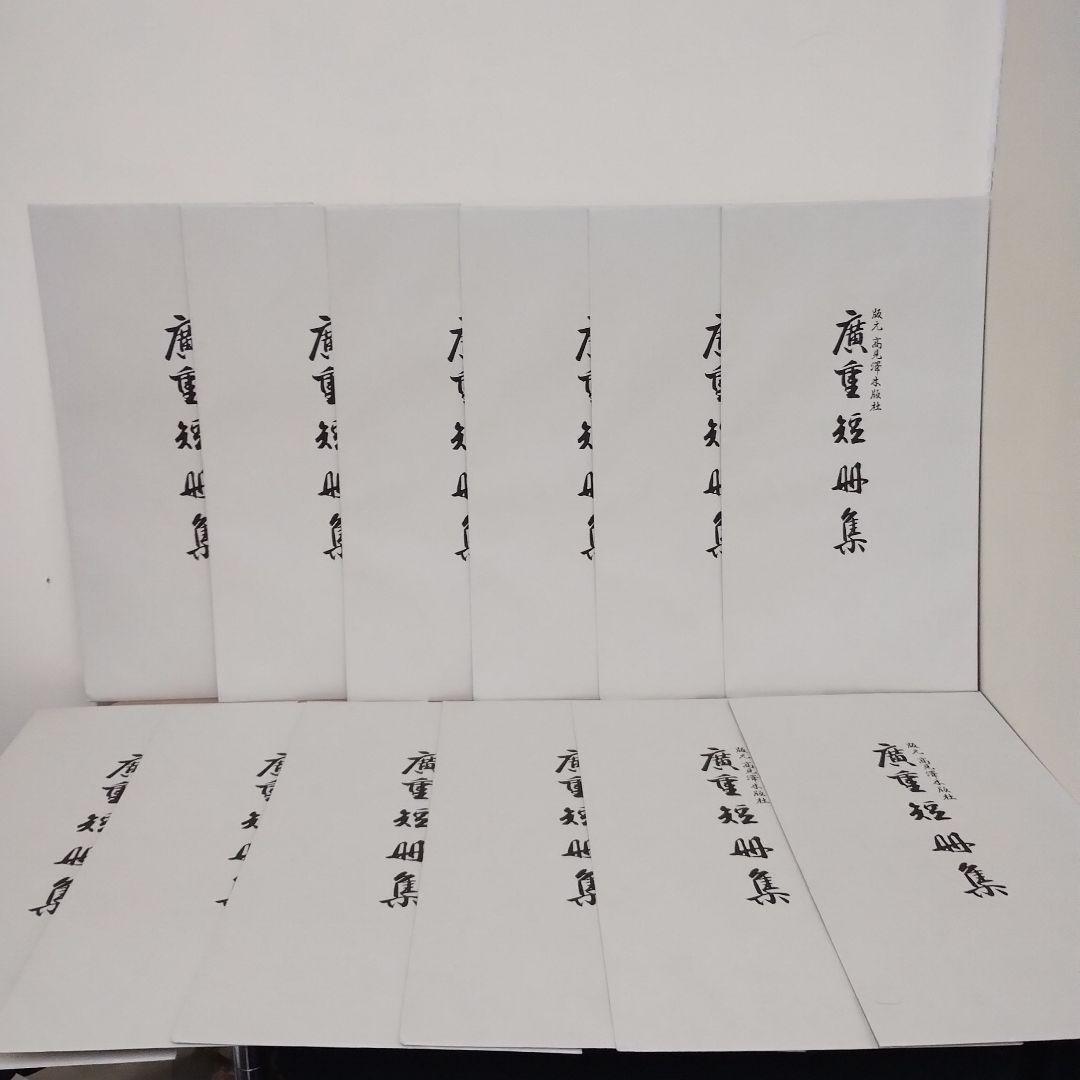 廣重短册集
廣重短册集
廣重短册集
廣重短册集
廣重短册集
版元 高見澤木版社
廣重短册集
廣重短册集
廣重短册集
廣重短册集
廣重短册集
版元 高見澤木版社
廣重短册集
版元 高見澤木版社
廣重短册集